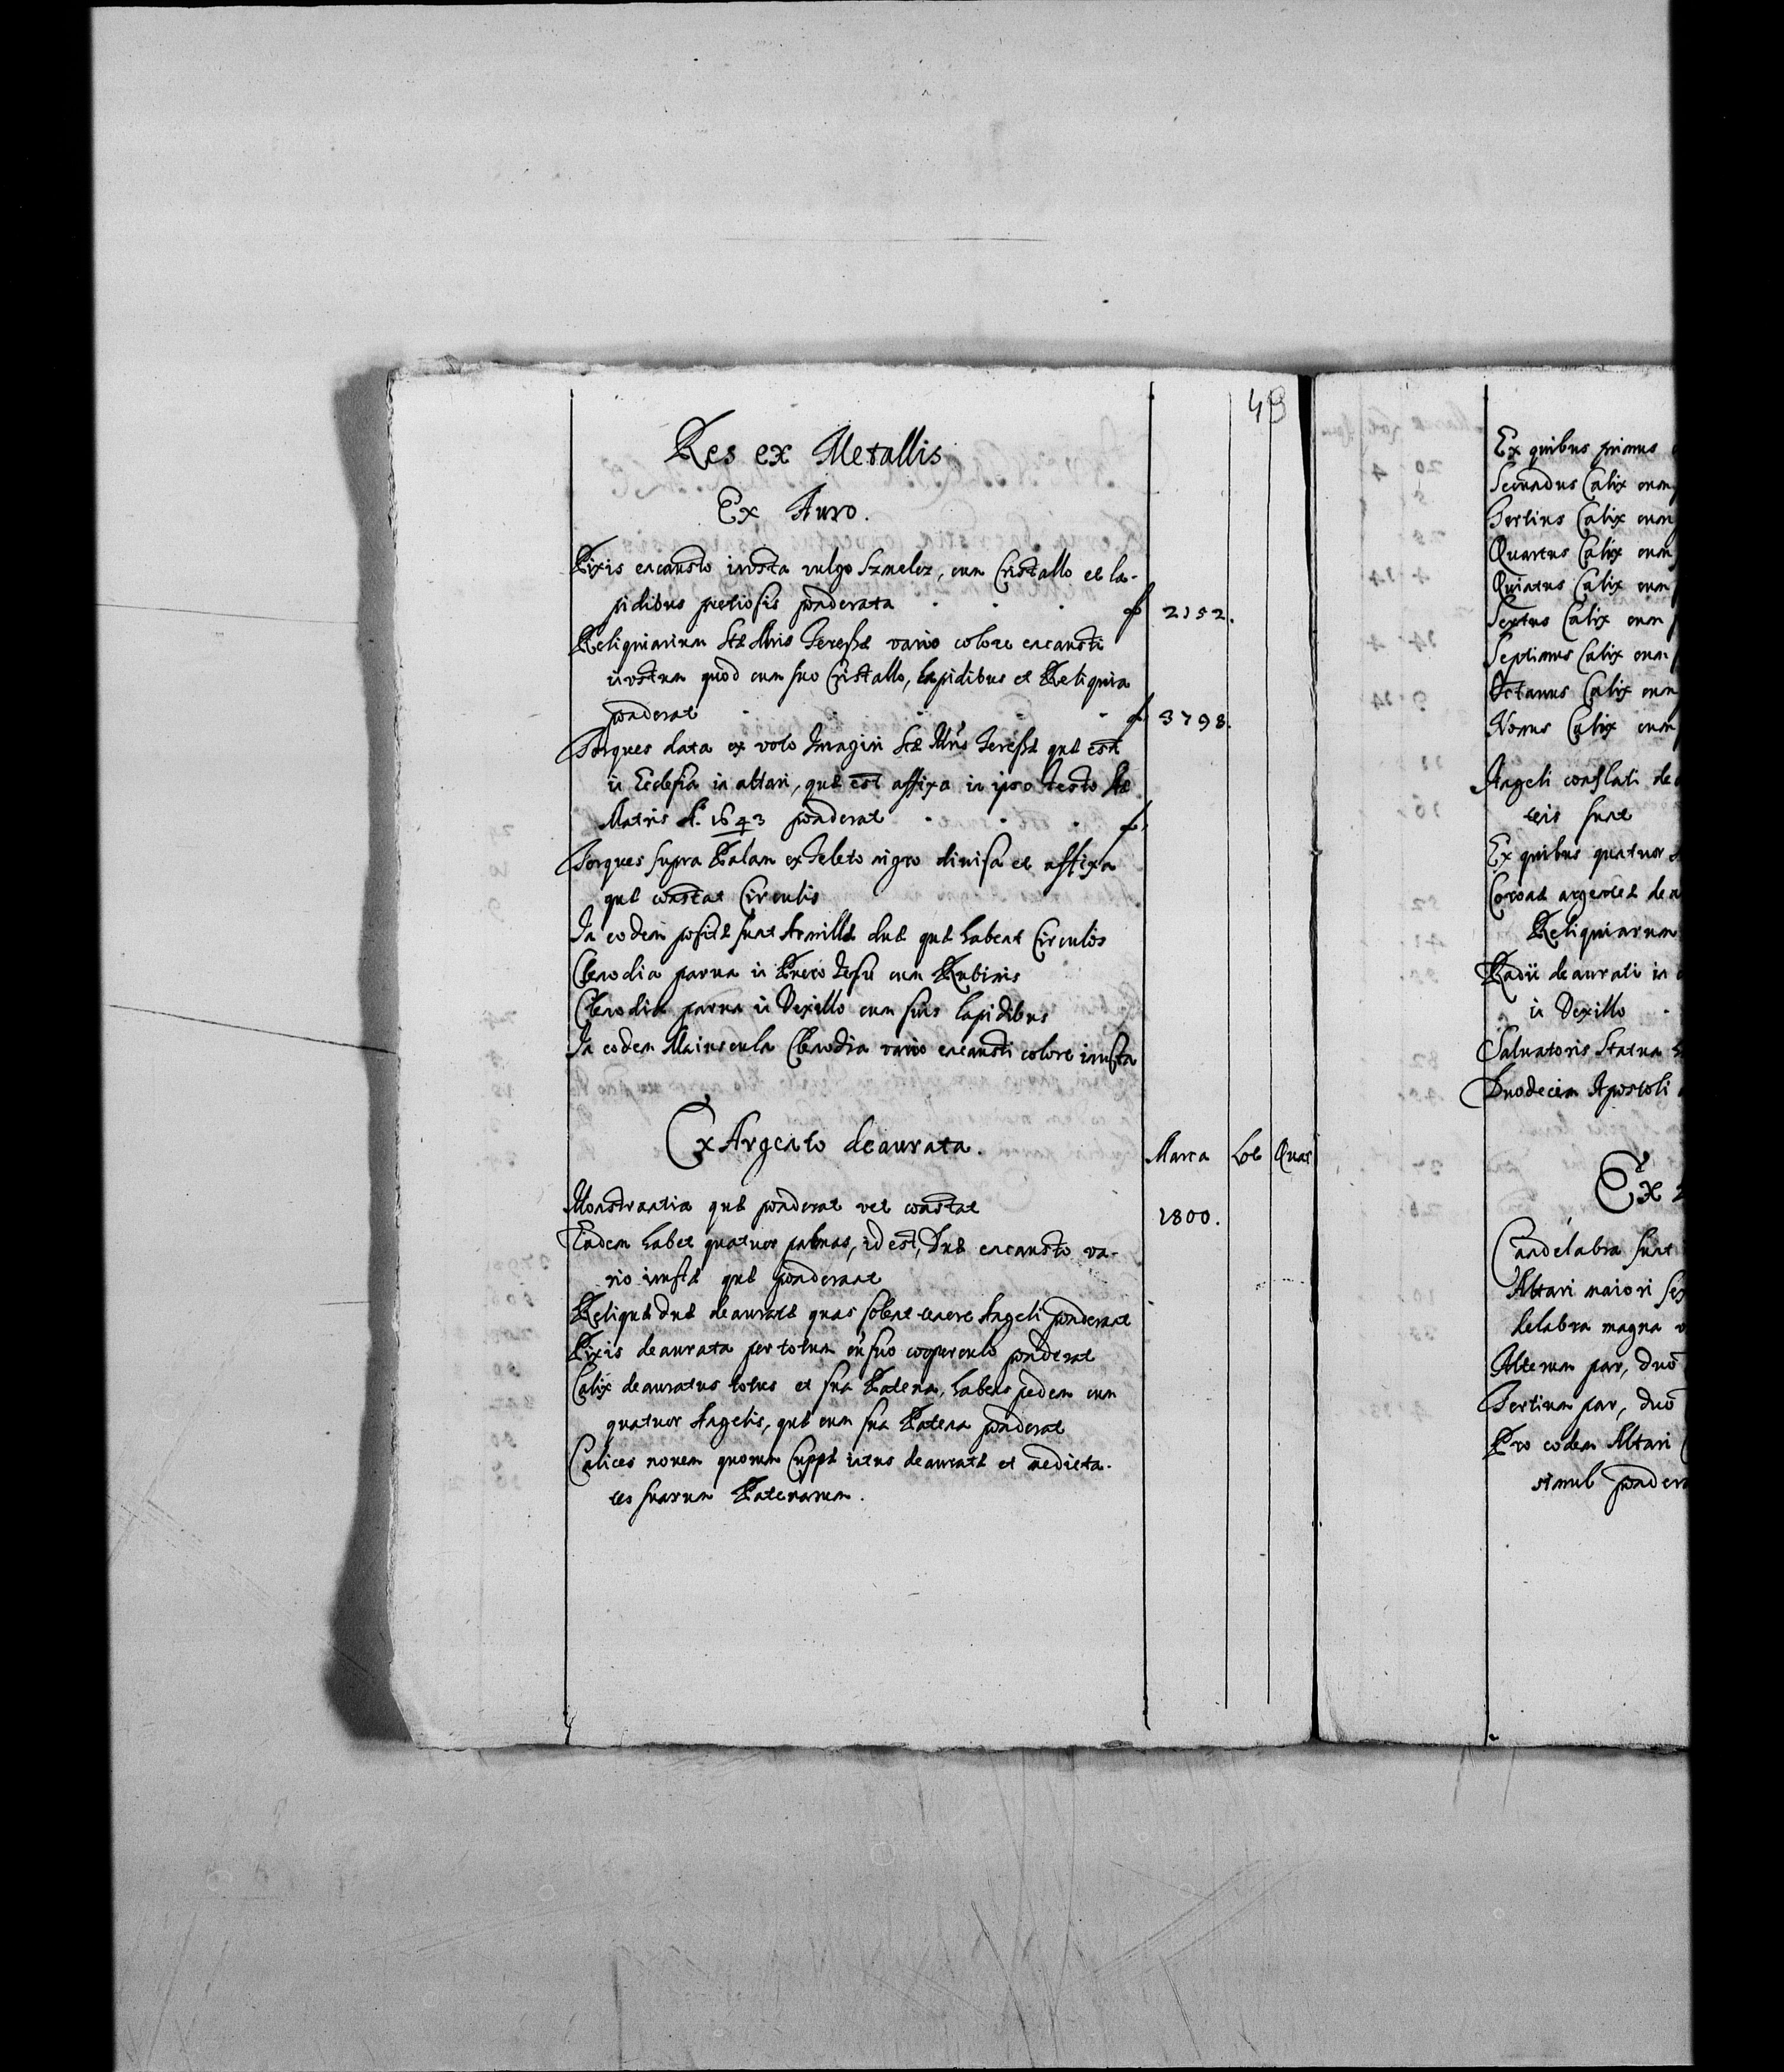 43
Res ex Metallis
Ex Auro.
Pixis encausto inusta vulgo Szmelcz, cum Cristallo et la-
pidibus pretiosis ponderata . . . 2152.
Reliquiarium Stæ Mris Teressæ vario colore encausti
inustum quod cum suo Cristallo, lapidibus et Reliquia
ponderat . . . 3798.
Torques data ex voto Imagini Stæ Mris Teressæ quæ est
in Ecclesia in altari, quæ est affixa in ipso Stæ
Matris A. 1643 ponderat . . .
Torques supra Palam ex Teleto nigro diuisa et affixa
quæ constat Circulis
In eodem positæ sunt Armillæ duæ quæ habent Circulos
Clenodia parua in Puero Jesu cum Rubinis
Clenodia parua in Vexillo cum suis lapidibus
In eodem Maiuscula Clenodia vario encausti colore inusta
Ex Argento deaurata.
Marca Lot Quar
Monstrantia quæ ponderat vel constat 1800.
Eadem habet quatuor palmas, id est, duæ encausto va-
rio inustæ quæ ponderant
Reliquæ duæ deauratæ quas solent tenere Angeli ponderant
Pixis deaurata per totum cũ suo cooperculo ponderat
Calix deauratus totus et sua Patena, habens pedem cum
quatuor Angelis, quæ cum sua Patena ponderat
Calices nouem quorum Cuppæ intus deauratæ et medieta-
tes suarum Patenarum.
Ex quibus primus
Secundus Calix cum
Tertius Calix cum
Quartus Calix cum
Quintus Calix cum
Sextus Calix cum
Septimus Calix cum
Octauus Calix cum
Nonus Calix cum
Angeli conflati de
teis sunt
Ex quibus quatuor
Coronæ argenteæ
Reliquiarum
Radii deaurati in
in Vexillo
Saluatoris Statua
Duodecim Apostoli
Ex
Candelabra sunt
Altari maiori
delabra magna
Alterum par, duo
Tertium par, duo
Pro eodem Altari
simul